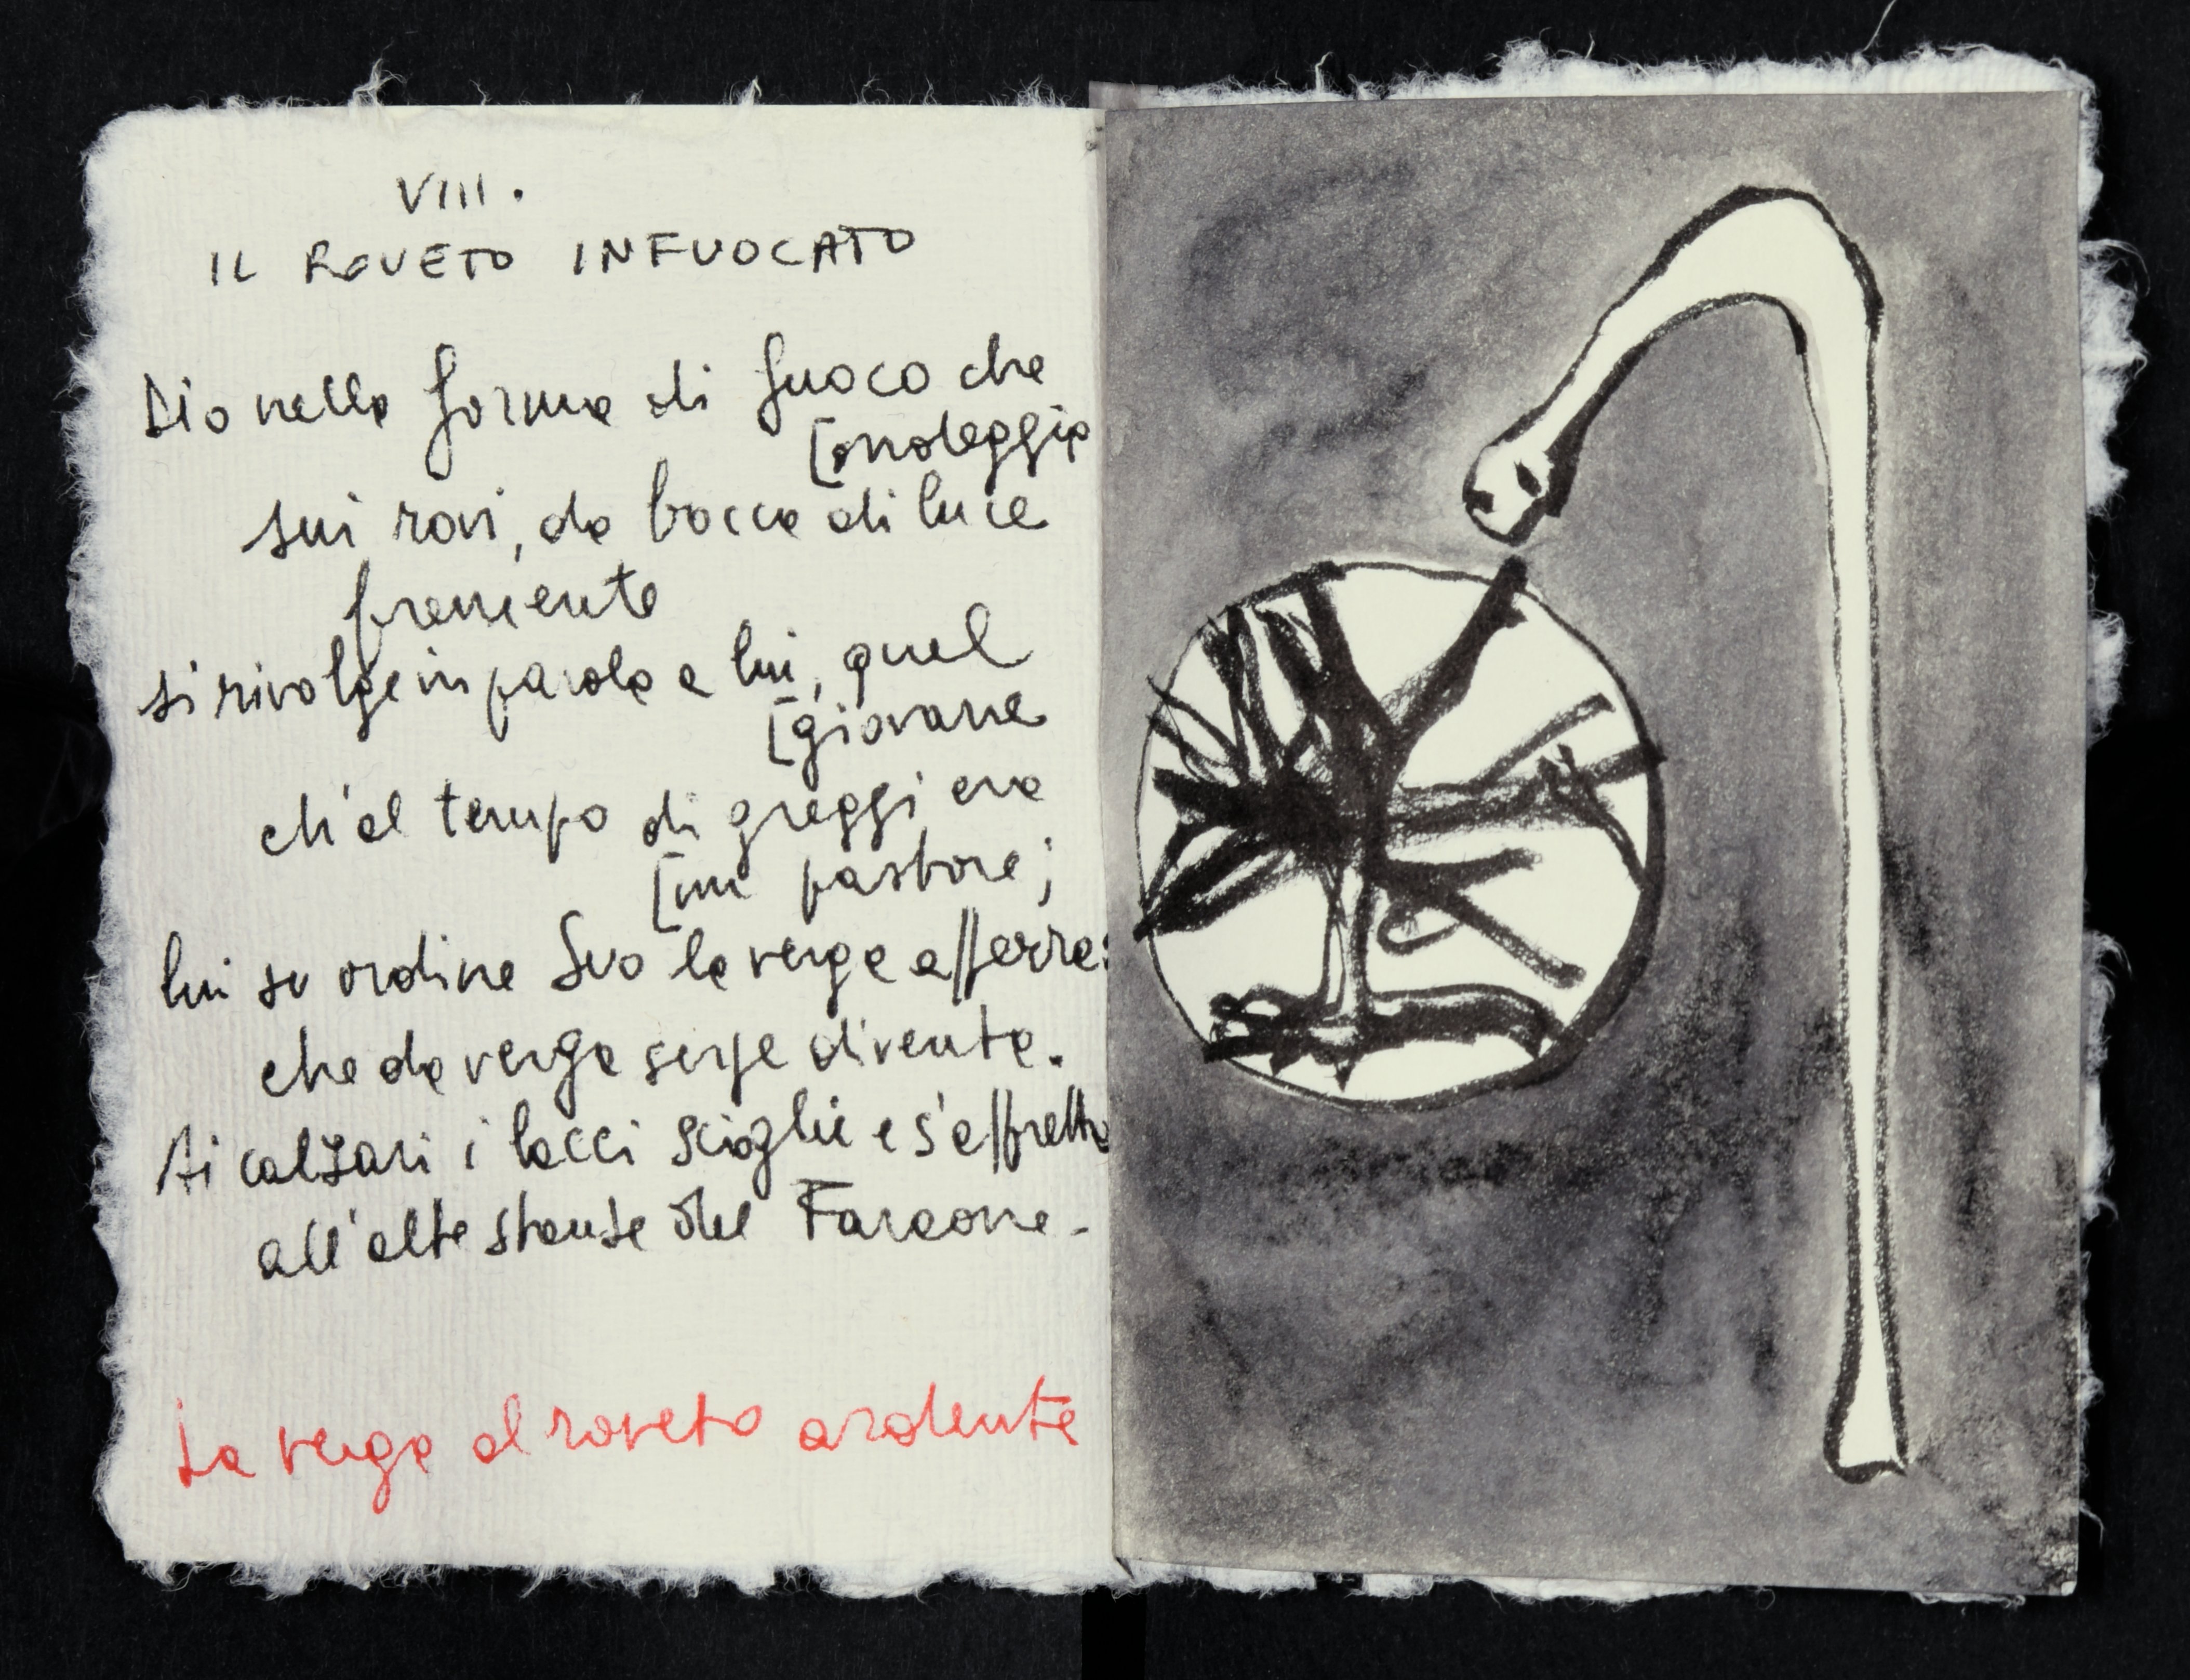 VIII.
IL ROVETO INFUOCATO
Dio nella forma di fuoco che
[ondeggia
sui rovi, da bocca di luce
fremente
si rivolge in parola a lui, quel
[giovane
ch'al tempo di greggi era
[un pastore;
lui su ordine Suo la verga afferra:
che da verga serpe diventa.
Ai calzari i lacci scioglie e s'affretta
all'alte stanze del Faraone.
La verga al roveto ardente